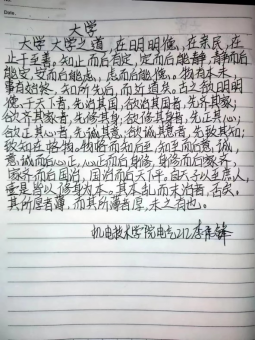 Date.
大学
大学 大学之道,在明明德,在亲民,在
止于至善。知止而后有定,定而后能静,静而后
能安,安而后能虑,虑而后能得。物有本末,
事有始终,知所先后,而近道矣。古之欲明明
德,于天下者,先治其国,欲治其国者,先齐其家;
欲齐其家者,先修其身;欲修其身者,先正其心;
欲正其心者,先诚其意;欲诚其意者,先致其知;
致知在格物。物格而知后至,知至而后意诚,
意诚而后心正,心正而后身修,身修而后家齐,
家齐而后国治,国治而后天下平。自天子以至庶人,
壹是皆以修身为本。其本乱而末治者,否矣。
其所厚者薄,而其所薄者厚,未之有也。
机电技术学院电气212李